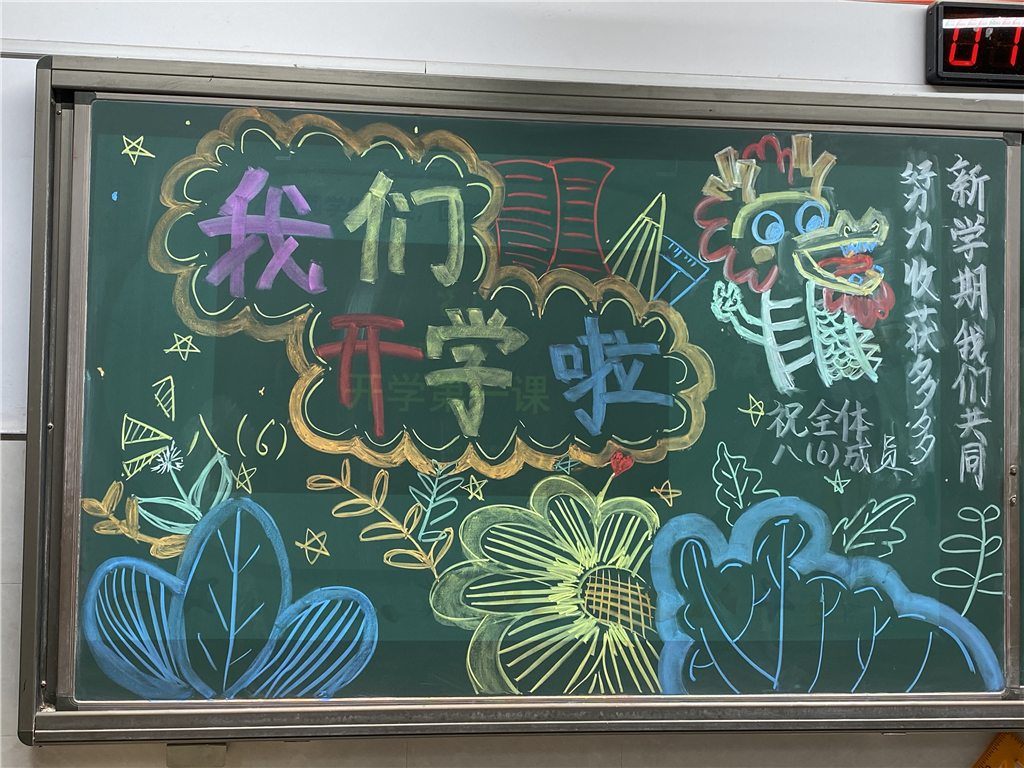 我们
开学啦
开学第一课
八(6)
新学期我们共同
努力收获多多
祝全体
八(6)成员
07